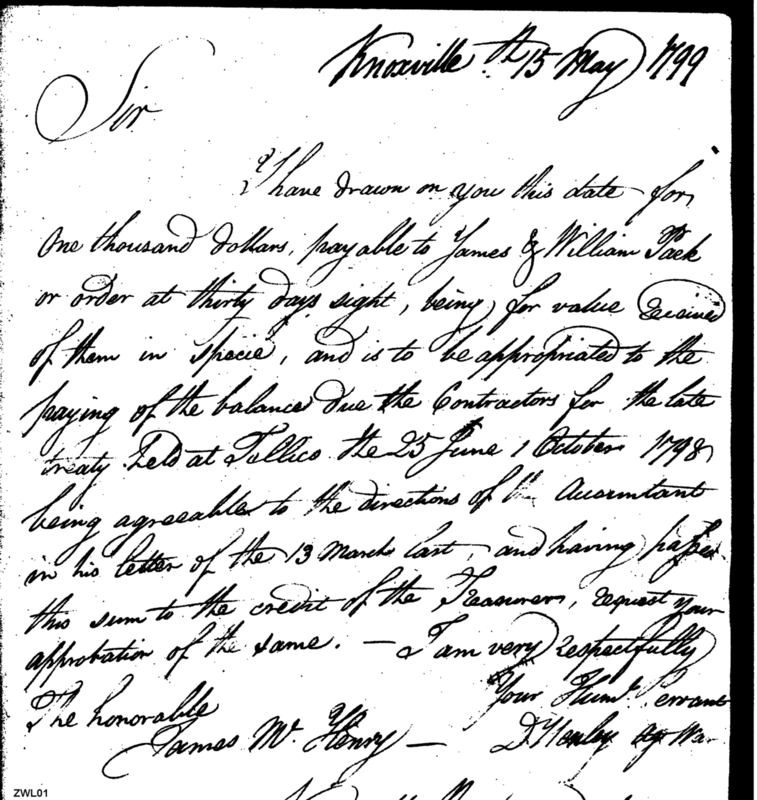 Knoxville th 15 May 1799
Sir
I have drawn on you this date for
One thousand dollars, payable to James & William Park
or order at thirty days sight, being for value received
of them in specie, and is to be appropriated to the
paying of the balance due the Contractors for the late
treaty held at Tellico the 25 June & 1 October 1798,
being agreeable to the directions of the Accountant
in his letter of the 13 March last, and having passed
this sum to the credit of the Treasurer, request your
approbation of the same. — I am very respectfully
Your Humb. Servant
The honorable
James Mc Henry — D Henley ag War
ZWL01